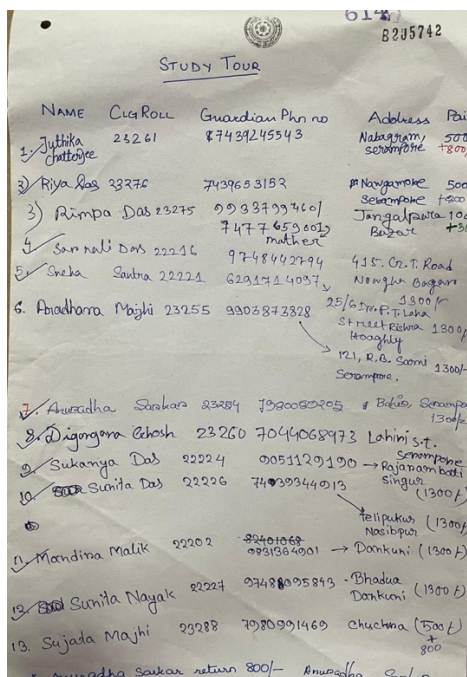 614
B205742
STUDY TOUR
NAME CLG ROLL Guardian Phn no Address Pai
1. Juthika Chatterjee 23261 87439245543 Nabagram, Serampore 500 +800
2) Riya Das 23276 7439653152 Nawgamore Serampore 500 +800
3) Rimpa Das 23275 9933799460/ Jangalpara Bazar
74776590012 mother
4. Das 22216 9748442794 415. G.T. Road
5. Sneha Santra 22221 6291714097, Nowgha Bagan 1300/-
6. Aradhana Majhi 23255 9903873828 25/G Dr. P.T. Laha Street Rishra Hooghly 1300/-
121, R.B. Saomi Serampore, 1300/-
7. Anuradha Sarkar 23254 7980089205 1300/-
8. Digangana Ghosh 23260 7044068973 Lahini s.t. Serampore
9. Sukanya Das 22224 9051129190 → Rajarambati Singur (1300/-)
10. Sunita Das 22226 7439344913
Telipukur Nasibpur (1300/-)
11. Mandira Malik 22202 82401068
9831364901 → Dankuni (1300/-)
12. Sunita Nayak 22227 9748095843 - Bhadua Dankuni (1300/-)
13. Sujada Majhi 23288 7980991469 Chuchra (500/- + 800
* Anuradha Sarkar return 800/- Anuradha